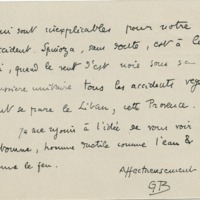 ui sont inexplicables pour notre
ccident. Spinoza, sans doute, est à l
i, quand le vent d'est noie sous sa
ussière unitaire tous les accidents
nt se pare le Liban, cette Provence.
Je me réjouis à l'idée se vous voir
bomme, homme ductile comme l'eau &
me le feu.
Affectueusement
GB